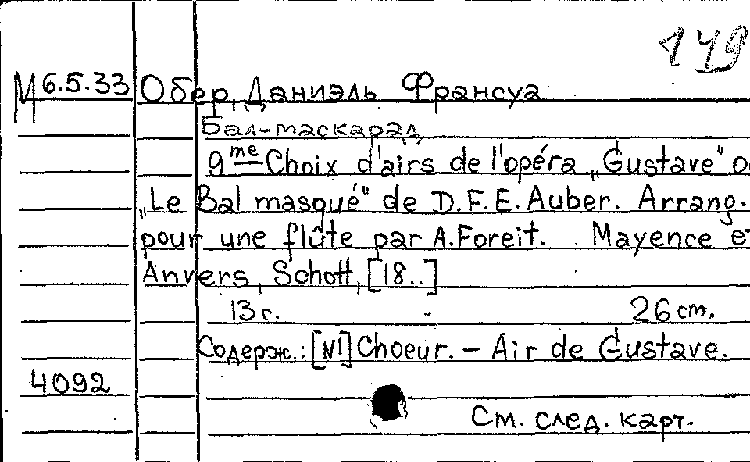 149
М 6.5.33 Обер, Даниэль Франсуа
Бал-маскарад
9me Choix d'airs de l'opéra „Gustave" ou
„Le Bal masqué" de D.F.E. Auber. Arrang.
pour une flûte par A.Foreit. Mayence et
Anvers, Schott, [18..]
13 г. 26 cm.
Содерж.: [N1] Choeur. – Air de Gustave.
4092
См. след. карт.